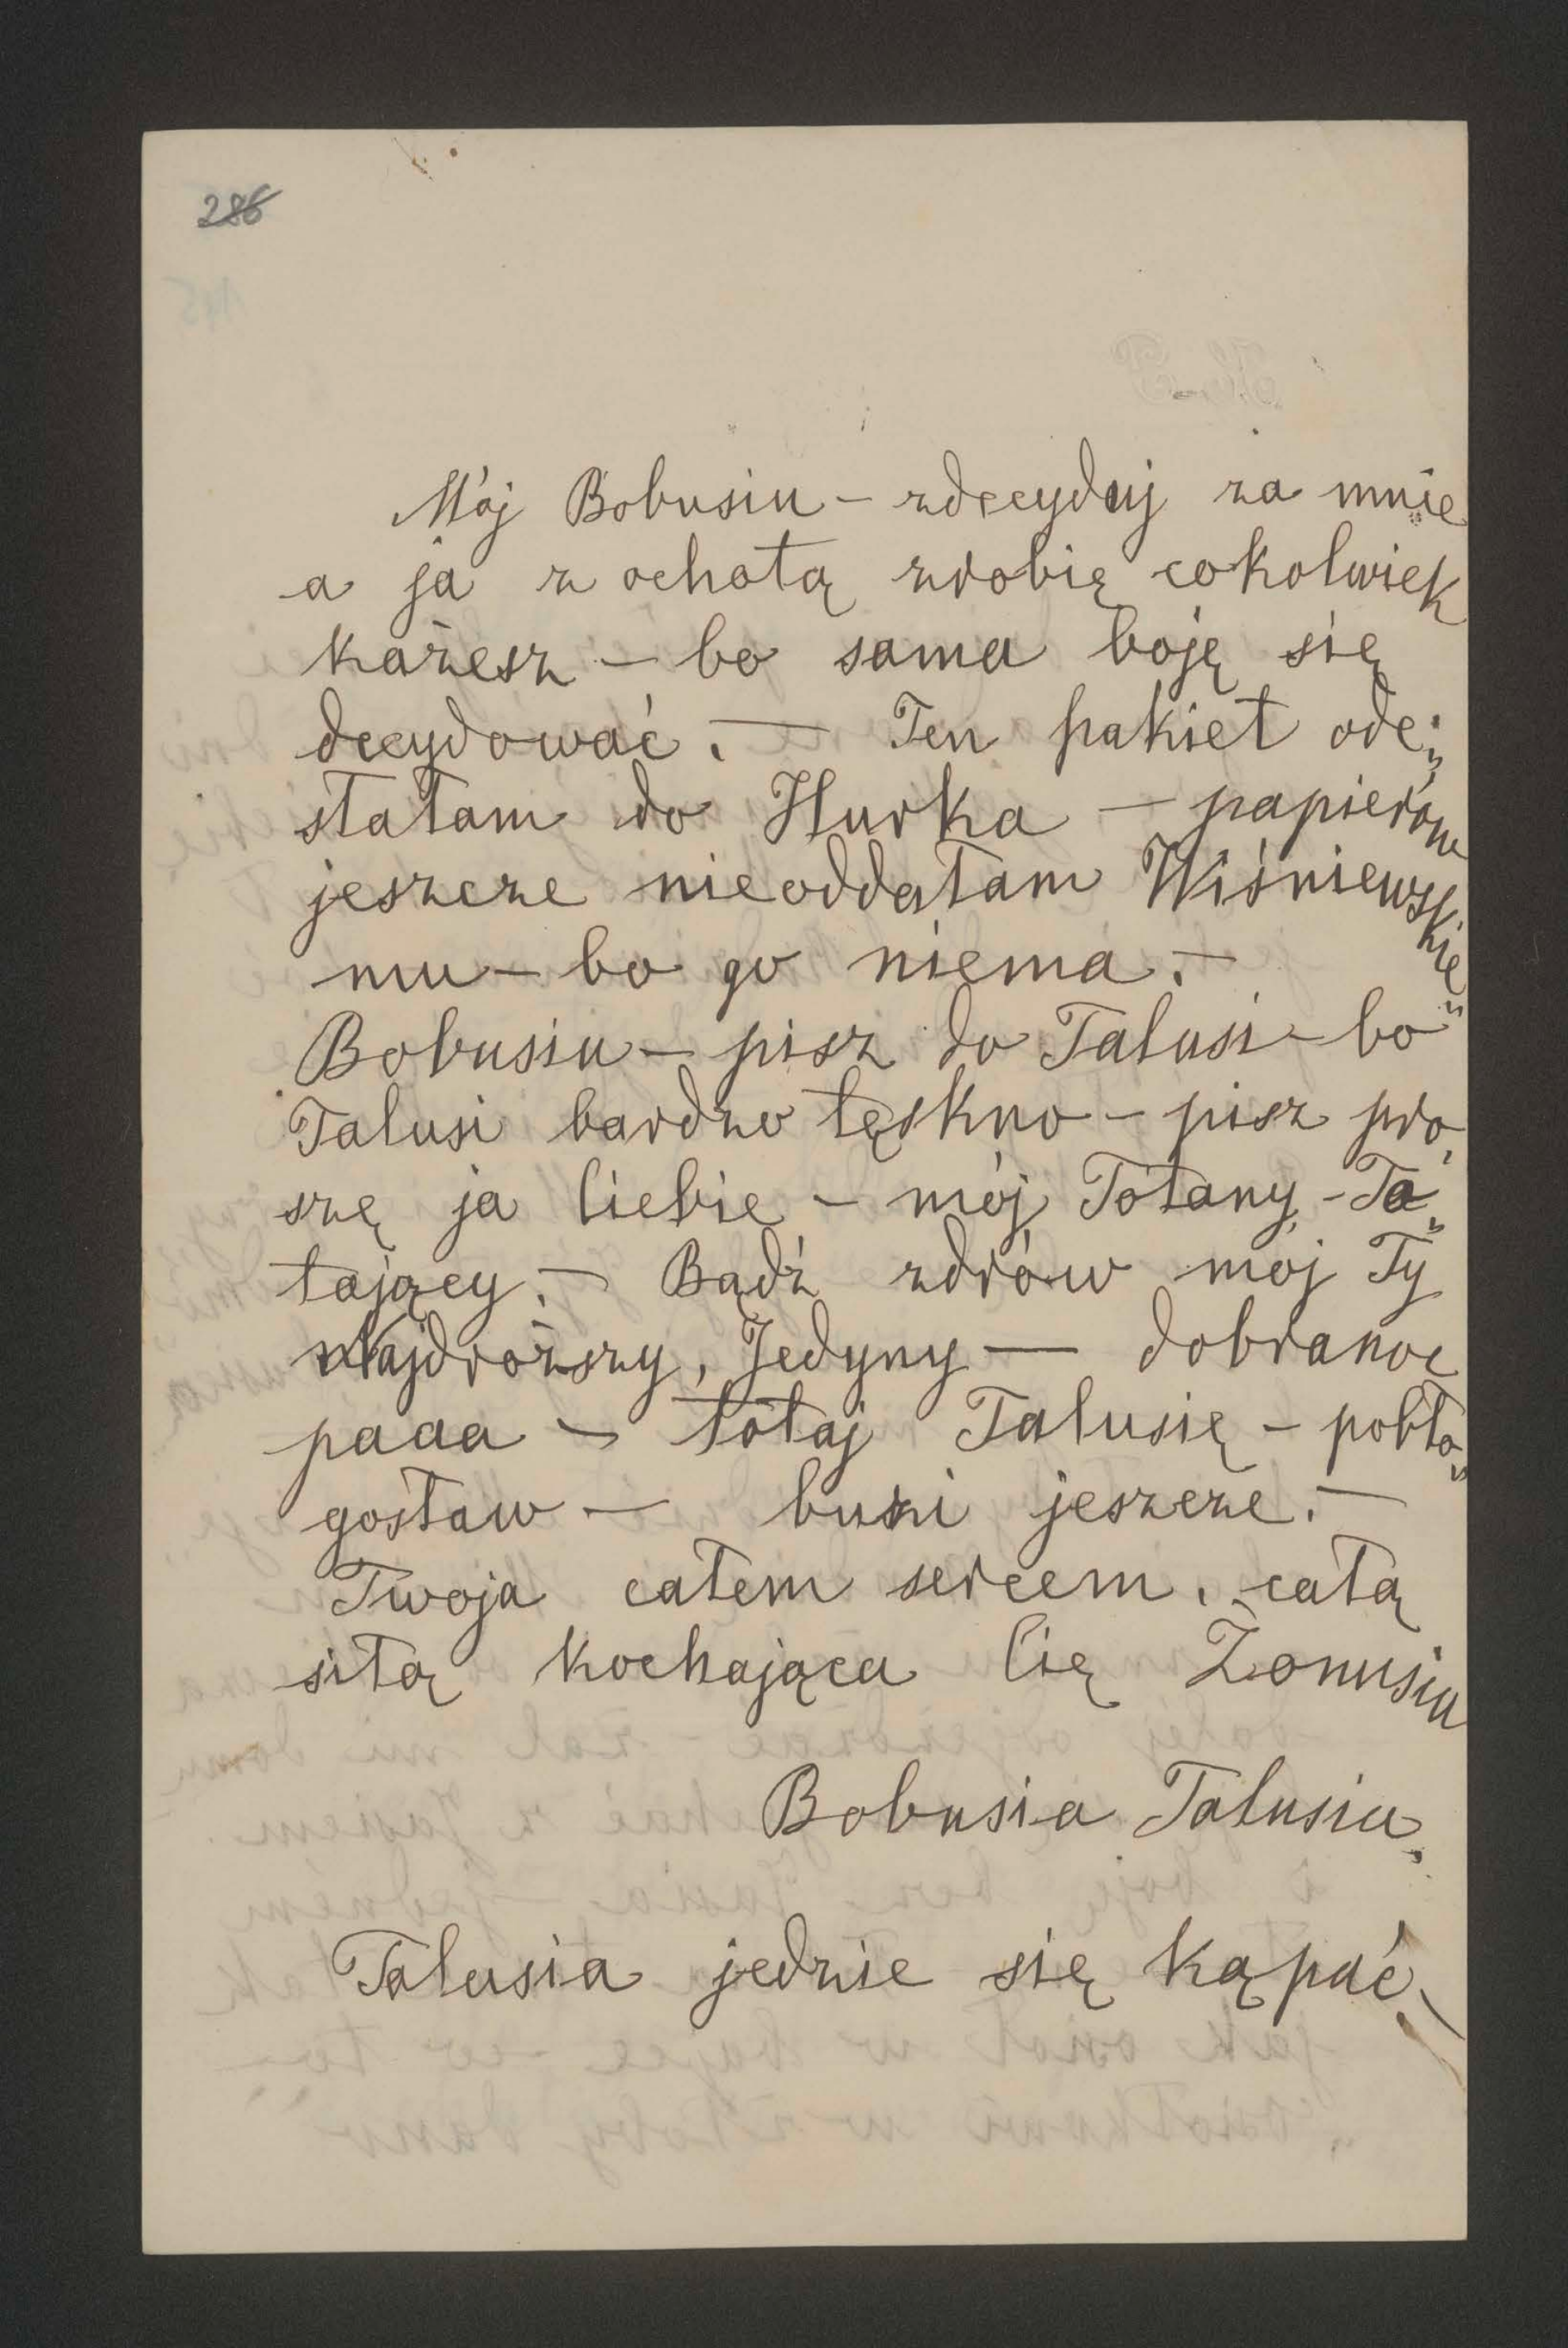 286
Mój Bobusiu – zdecyduj za mnie
a ja z ochotą zrobię cokolwiek
każesz – bo sama boję się
decydować. – Ten pakiet ode„
słałam do Hurka – papierów
jeszcze nieoddałam Wiśniewskie„
mu – bo go niema. –
Bobusiu – pisz do Talusi – bo
Talusi bardzo tęskno – pisz pro„
szę ja Ciebie – mój Totany – Ta„
tający. – Bądź zdrów mój Ty
Najdroższy, Jedyny – dobranoc
paaa – totaj Talusię – pobło„
gosław – buzi jeszcze. –
Twoja całem sercem, całą
siłą kochająca Cię Żonusia
Bobusia Talusia.
Talusia jedzie się kąpać –